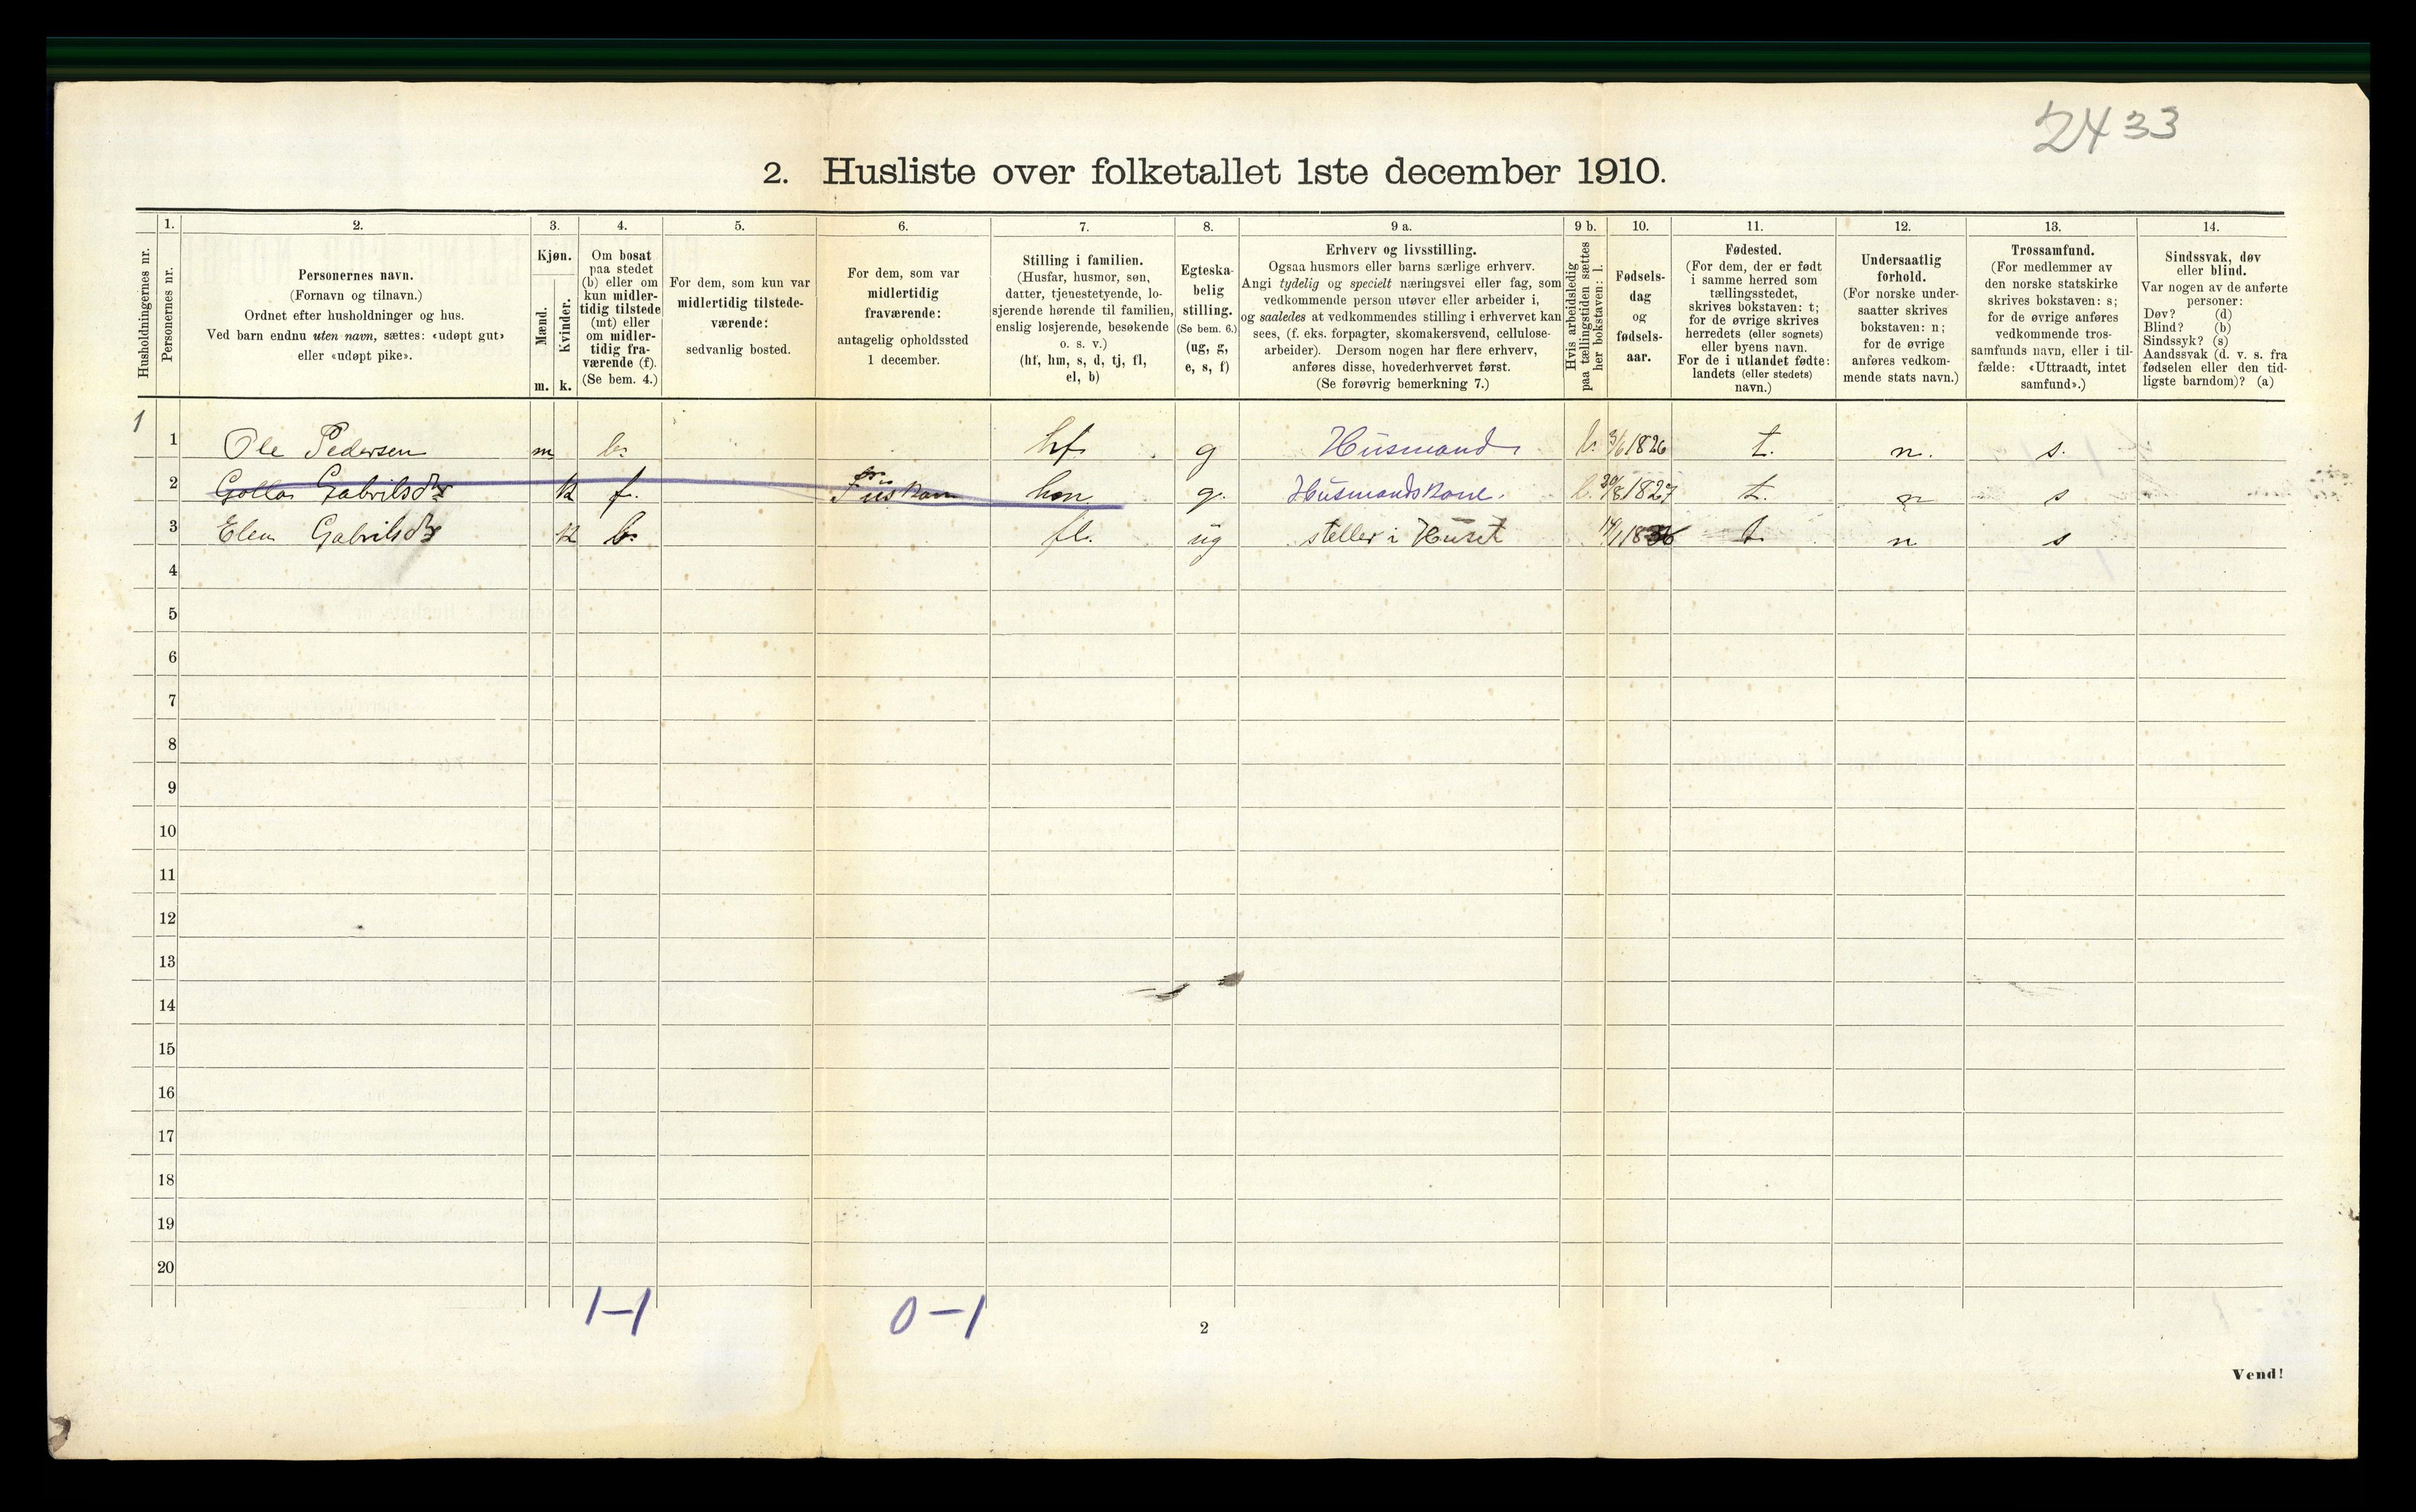 2433
2. Husliste over folketallet 1ste december 1910.
Husholdningernes nr.
1.
Personernes nr.
2.
Personernes navn.
(Fornavn og tilnavn.)
Ordnet efter husholdninger og hus.
Ved barn endnu uten navn, sættes: «udøpt gut»
eller «udøpt pike».
3.
Kjøn.
Mænd.
Kvinder.
m. k.
4.
Om bosat
paa stedet
(b) eller om
kun midler-
tidig tilstede
(mt) eller
om midler-
tidig fra-
værende (f).
(Se bem. 4.)
5.
For dem, som kun var
midlertidig tilstede-
værende:
sedvanlig bosted.
6.
For dem, som var
midlertidig
fraværende:
antagelig opholdssted
1 december.
7.
Stilling i familien.
(Husfar, husmor, søn,
datter, tjenestetyende, lo-
sjerende hørende til familien,
enslig losjerende, besøkende
o. s. v.)
(hf, hm, s, d, tj, fl,
el, b)
8.
Egteska-
belig
stilling.
(Se bem. 6.)
(ug, g,
e, s, f)
9 a.
Erhverv og livsstilling.
Ogsaa husmors eller barns særlige erhverv.
Angi tydelig og specielt næringsvei eller fag, som
vedkommende person utøver eller arbeider i,
og saaledes at vedkommendes stilling i erhvervet kan
sees, (f. eks. forpagter, skomakersvend, cellulose-
arbeider). Dersom nogen har flere erhverv,
anføres disse, hovederhvervet først.
(Se forøvrig bemerkning 7.)
9 b.
Hvis arbeidsledig
paa tællingstiden sættes
her bokstaven: l.
10.
Fødsels-
dag
og
fødsels-
aar.
11.
Fødested.
(For dem, der er født
i samme herred som
tællingsstedet,
skrives bokstaven: t;
for de øvrige skrives
herredets (eller sognets)
eller byens navn.
For de i utlandet fødte:
landets (eller stedets)
navn.)
12.
Undersaatlig
forhold.
(For norske under-
saatter skrives
bokstaven: n;
for de øvrige
anføres vedkom-
mende stats navn.)
13.
Trossamfund.
(For medlemmer av
den norske statskirke
skrives bokstaven: s;
for de øvrige anføres
vedkommende tros-
samfunds navn, eller i til-
fælde: «Uttraadt, intet
samfund».)
14.
Sindssvak, døv
eller blind.
Var nogen av de anførte
personer:
Døv? (d)
Blind? (b)
Sindssyk? (s)
Aandssvak (d. v. s. fra
fødselen eller den tid-
ligste barndom)? (a)
1 1 Ole Pedersen m b. hf. g Husmand 3/6 1826 t. n. s.
2 Gabrilsdtr k f. g. Husmandskone. 1827 t. n s
3 Elen Gabrilsdtr k b. fl. ug steller i Huset t. n s
4
5
6
7
8
9
10
11
12
13
14
15
16
17
18
19
20
1-1 0-1
2
Vend!